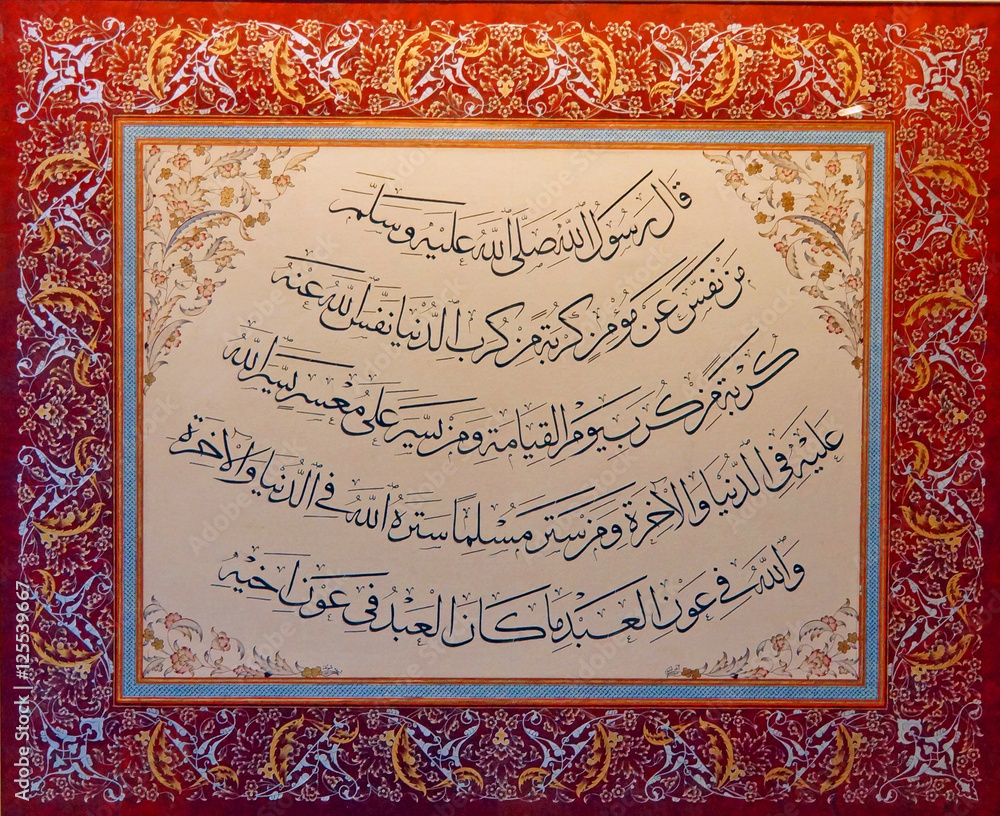 قال رسول الله صلى الله عليه وسلم
من نفس عن مؤمن كربة من كرب الدنيا نفس الله عنه
كربة من كرب يوم القيامة ومن يسر على معسر يسر الله
عليه في الدنيا والآخرة ومن ستر مسلما ستره الله في الدنيا والآخرة
والله في عون العبد ما كان العبد في عون اخيه
Adobe Stock | #125539667